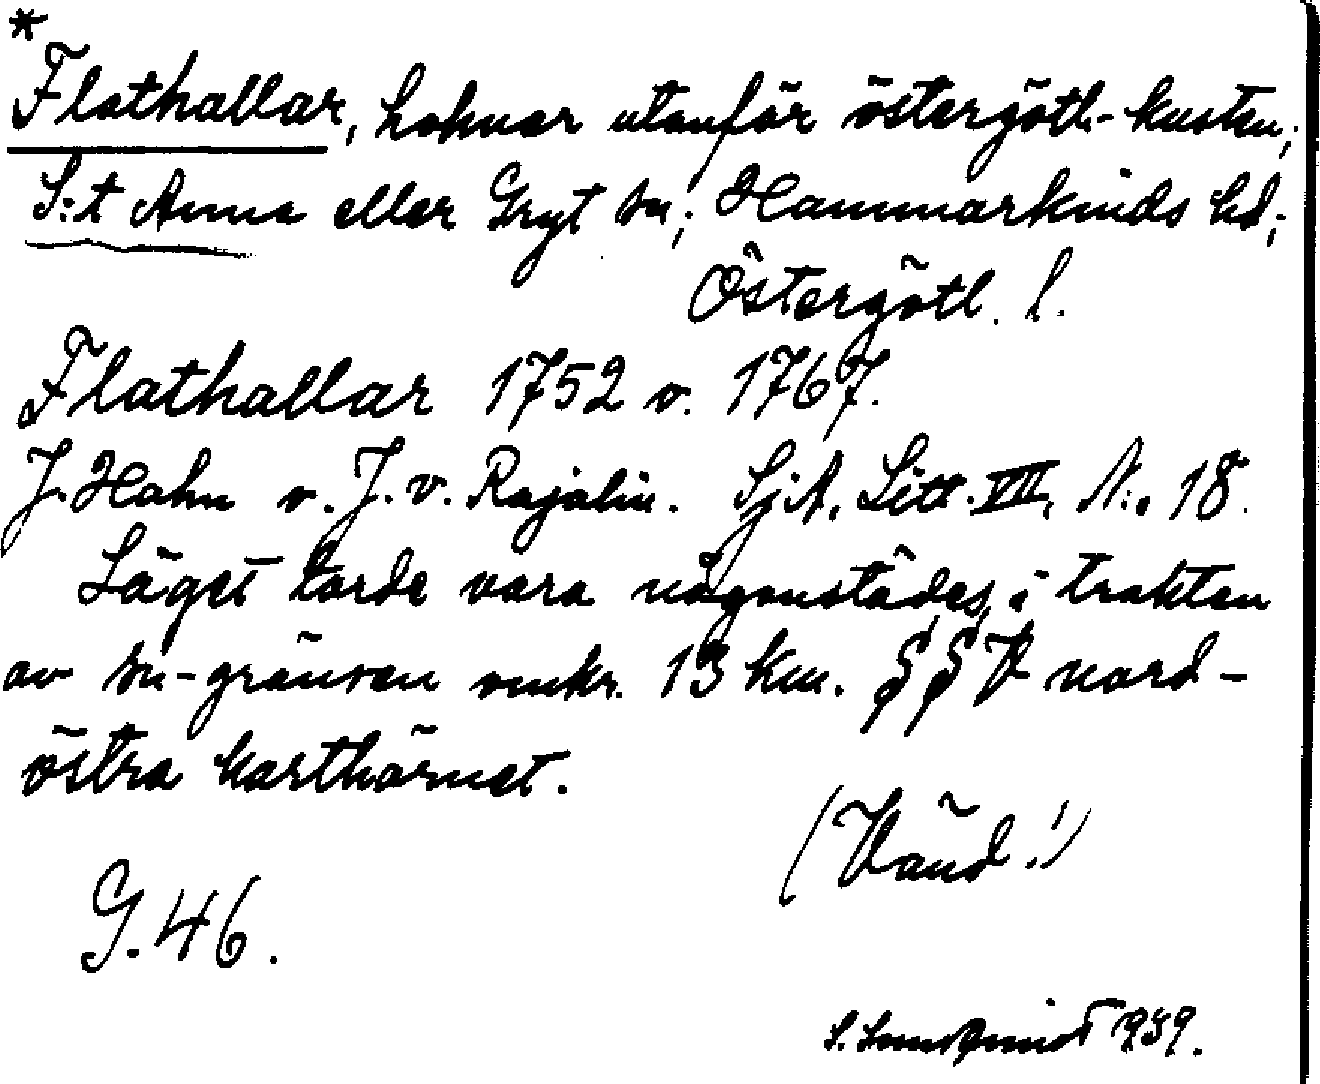 *
Flathallar, holmar utanför östergötl.-kusten;
S:t Anna eller Gryt sn; Hammarkinds hd;
Östergötl. l.
Flathallar 1752 o. 1767.
J. Hahn o. J. v. Rajalin. SjA. Litt. VIII, N:o 18.
Läget torde vara någonstädes i trakten
av sn-gränsen omkr. 13 km. SSV nord-
östra karthörnet.
(Vänd!)
G. 46.
S. 1939.